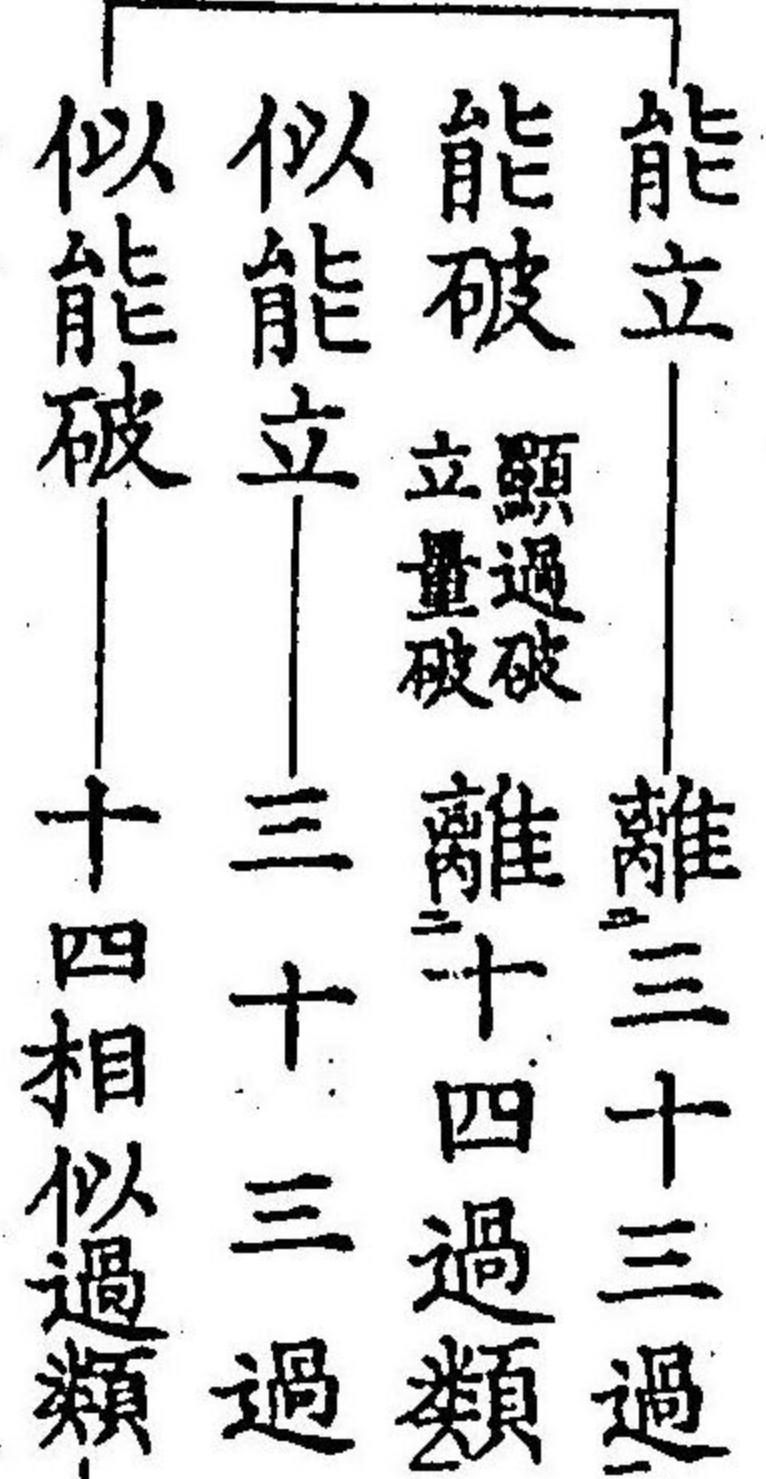 能立 離二三十三過一
能破 顯過破 立量破 離二十四過類一
似能立 三十三過
似能破 十四相似過類